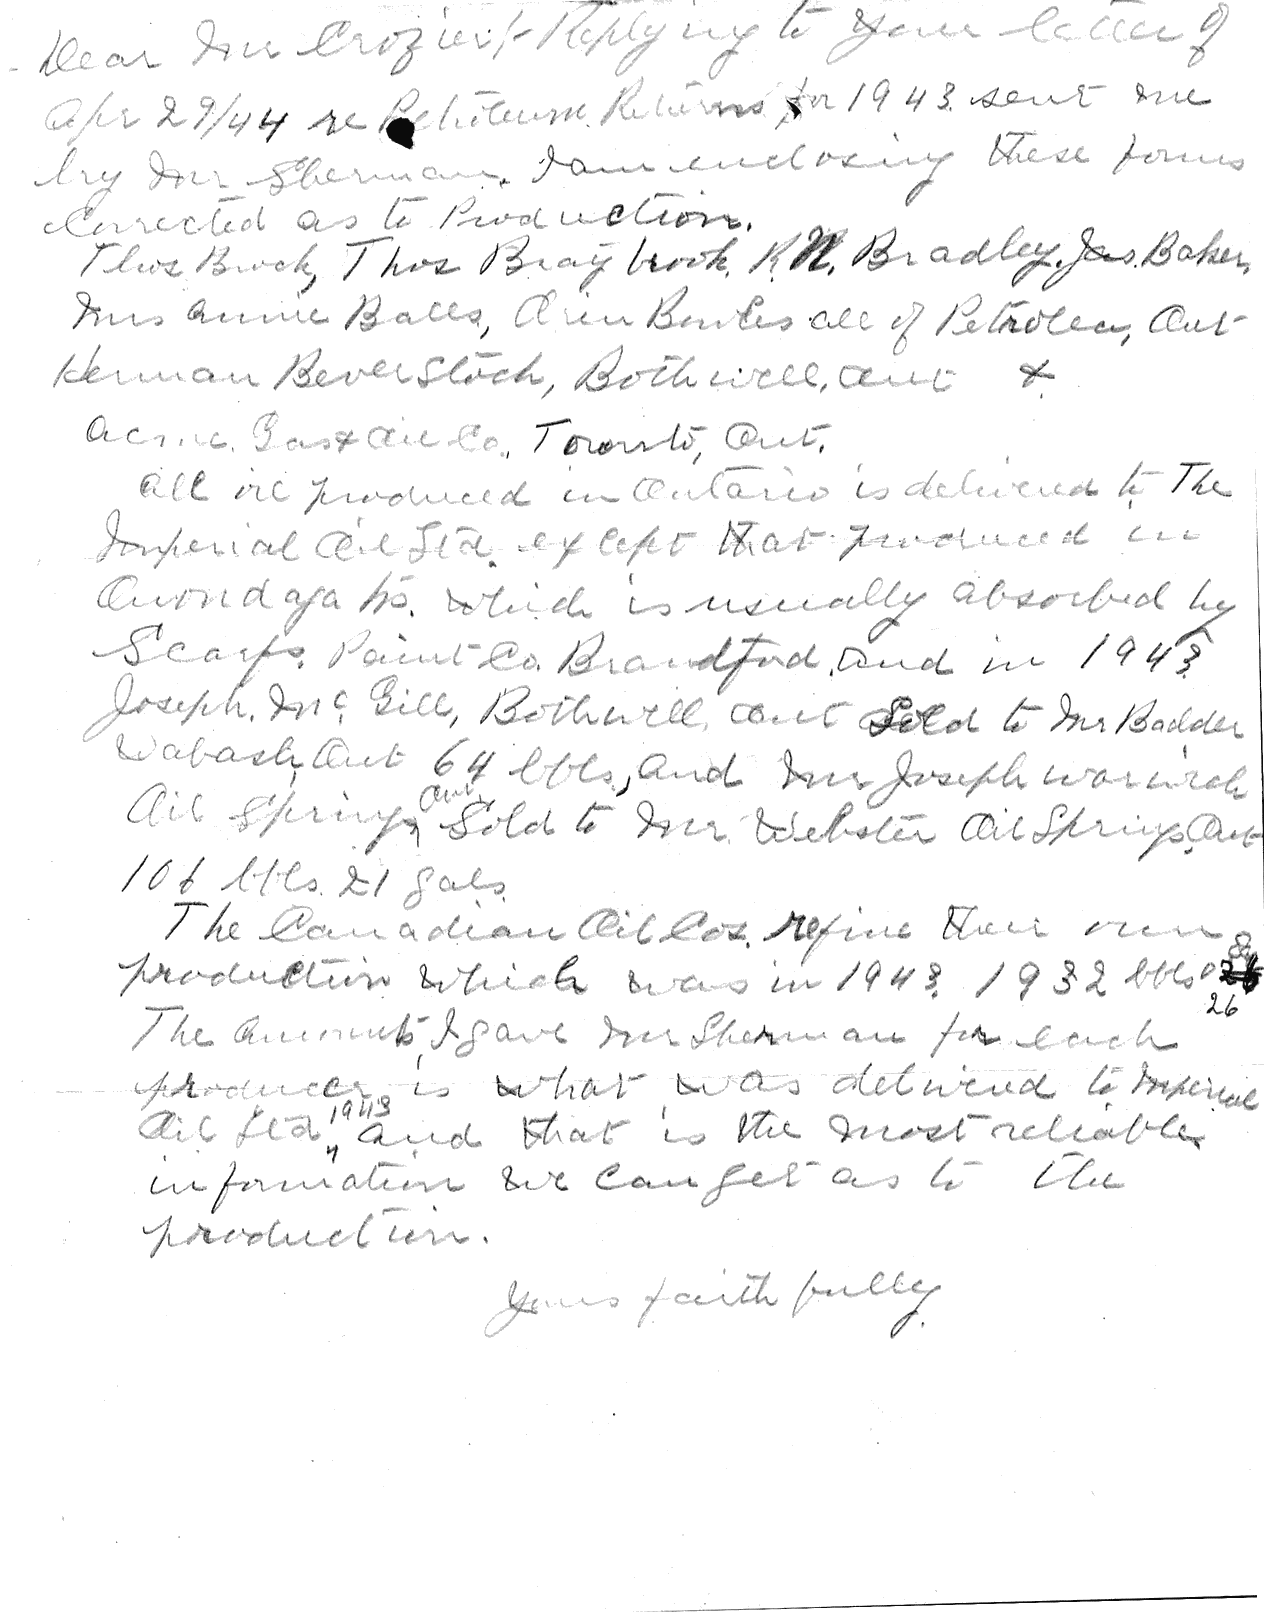 Dear Mr Crozier:- Replying to your letter of
Apr 29/44 re Petroleum Returns for 1943 sent me
by Mr Sherman. I am enclosing these forms
corrected as to Production.
Thos Brock, Thos Braybrook, R.N. Bradley, Jas. Baker,
Mrs Annie Balls, Bowles all of Petrolea, Ont
Herman Beverstock, Bothwell, Ont &
Acme Gas & Oil Co., Toronto, Ont.
All oil produced in Ontario is delivered to The
Imperial Oil Ltd. except that produced in
Onondaga Tp. which is usually absorbed by
Scarfs. Paint Co. Brandford, and in 1943
Joseph. Mc. Gill, Bothwell, Ont Sold to Mr Badder
Wabash, Ont 64 bbls, and Mr Joseph Warwick
Oil Springs, Ont. Sold to Mr. Webster Oil Springs, Ont
106 bbls. 21 gals.
The Canadian Oil Cos. refine their own
production which was in 1943. 1932 bbls &
26
The amounts, I gave Mr Sherman for each
producer is what was delivered to Imperial
Oil Ltd, 1943 and that is the most reliable
information we can get as to the
production.
Yours faithfully